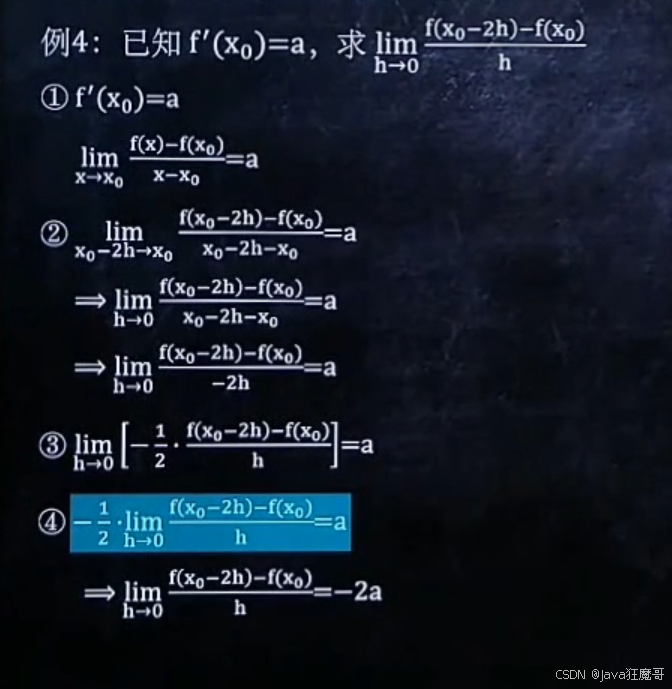 例4：已知 f′(x₀)=a，求 lim_{h→0} \frac{f(x₀−2h)−f(x₀)}{h}
① f′(x₀)=a
lim_{x→x₀} \frac{f(x)−f(x₀)}{x−x₀}=a
② lim_{x₀−2h→x₀} \frac{f(x₀−2h)−f(x₀)}{x₀−2h−x₀}=a
⟹ lim_{h→0} \frac{f(x₀−2h)−f(x₀)}{x₀−2h−x₀}=a
⟹ lim_{h→0} \frac{f(x₀−2h)−f(x₀)}{−2h}=a
③ lim_{h→0} [−\frac{1}{2}·\frac{f(x₀−2h)−f(x₀)}{h}]=a
④ −\frac{1}{2}·lim_{h→0} \frac{f(x₀−2h)−f(x₀)}{h}=a
⟹ lim_{h→0} \frac{f(x₀−2h)−f(x₀)}{h}=−2a
CSDN @Java狂魔哥